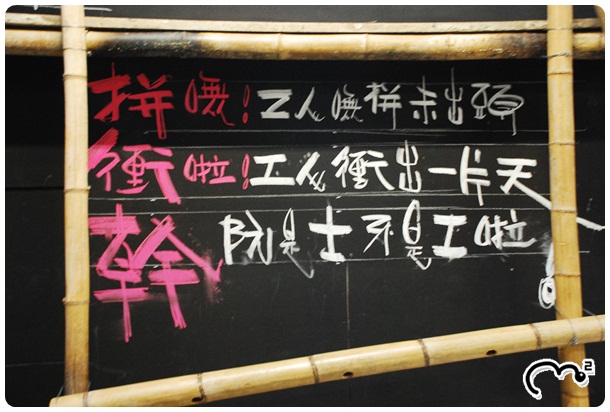 拼嘸!工人嘸拼未出頭
衝啦!工人衝出一片天
幹 阮是士不是工啦